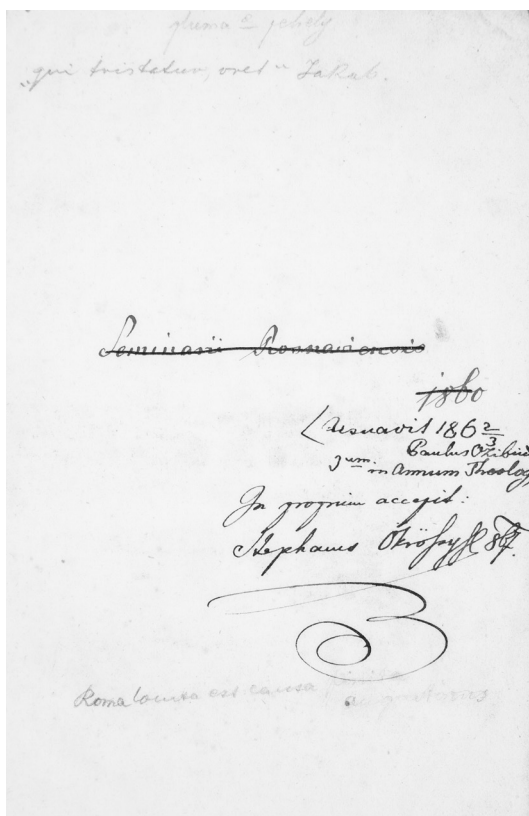 pluma = pehely
"qui tristatur, oret" Jakab.
Seminarii Rosnaviensis
1860
Usuavit 186 2/3
Paulus
in annum Theolog
In proprium accepit:
Stephanus
Roma locuta est causa finita